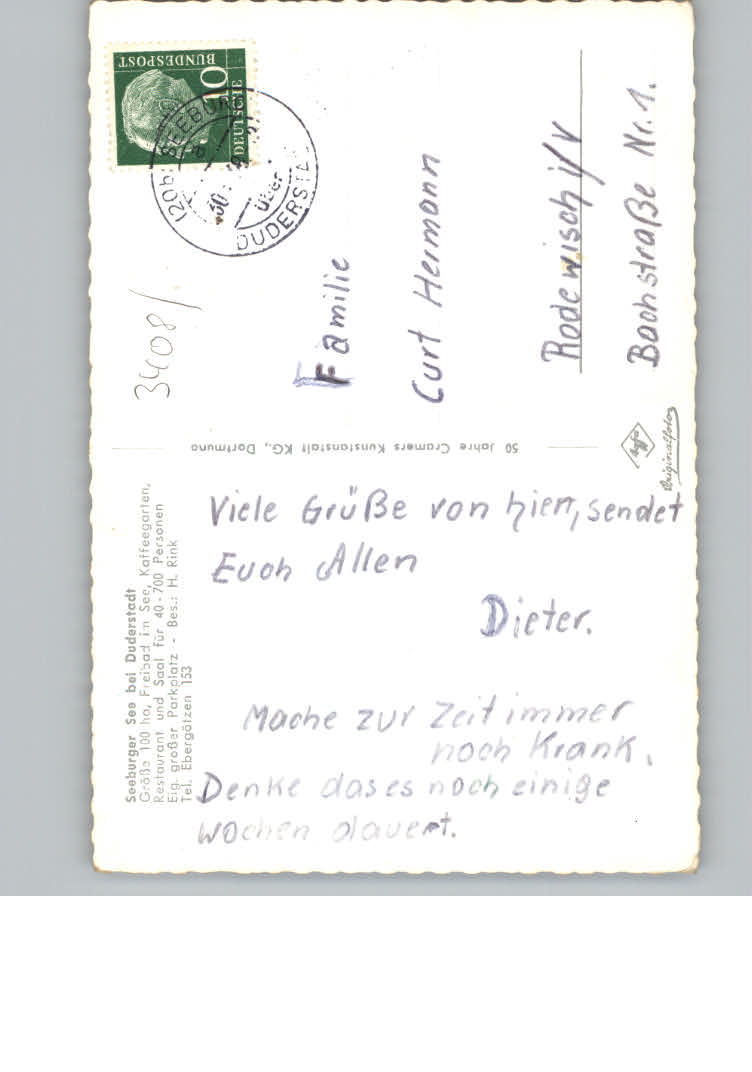 Seeburger See bei Duderstadt
Größe 100 ha, Freibad im See, Kaffeegarten,
Restaurant und Saal für 40-700 Personen
Eig. großer Parkplatz - Bes.: H. Rink
Tel. Ebergötzen 153
Viele Grüße von hierr, sendet
Euch Allen
Dieter.
Mache zur Zeit immer
noch Krank.
Denke das es noch einige
wochen dauert.
50 Jahre Cramers Kunstanstalt KG., Dortmund
Agfa
Originalfoto
3408/
DEUTSCHE
BUNDESPOST
10
(20b) SEEBURG
30
über
DUDERSTA
Familie
Curt Hermann
Rodewisch i/V
Bachstraße Nr. 1.